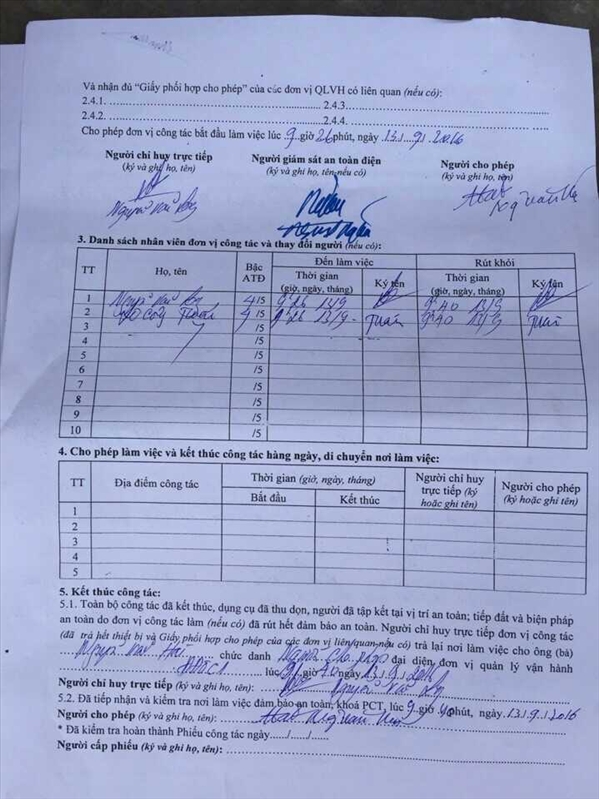 Và nhận đủ “Giấy phối hợp cho phép” của các đơn vị QLVH có liên quan (nếu có):
2.4.1. 2.4.3.
2.4.2. 2.4.4.
Cho phép đơn vị công tác bắt đầu làm việc lúc 9 giờ 26 phút, ngày 13/9/2016
Người chỉ huy trực tiếp Người giám sát an toàn điện Người cho phép
(ký và ghi họ, tên) (ký và ghi họ, tên nếu có) (ký và ghi họ, tên)
3. Danh sách nhân viên đơn vị công tác và thay đổi người (nếu có):
TT Họ, tên Bậc ATĐ Đến làm việc Rút khỏi
Thời gian (giờ, ngày, tháng) Ký tên Thời gian (giờ, ngày, tháng) Ký tên
1 4/5 9h26 13/9 9h40 13/9
2 4/5 9h26 13/9 Tuấn 9h40 13/9 Tuấn
3 /5
4 /5
5 /5
6 /5
7 /5
8 /5
9 /5
10 /5
4. Cho phép làm việc và kết thúc công tác hàng ngày, di chuyển nơi làm việc:
TT Địa điểm công tác Thời gian (giờ, ngày, tháng) Người chỉ huy trực tiếp (ký hoặc ghi tên) Người cho phép (ký hoặc ghi tên)
Bắt đầu Kết thúc
1
2
3
4
5
5. Kết thúc công tác:
5.1. Toàn bộ công tác đã kết thúc, dụng cụ đã thu dọn, người đã tập kết tại vị trí an toàn; tiếp đất và biện pháp
an toàn do đơn vị công tác làm (nếu có) đã rút hết đảm bảo an toàn. Người chỉ huy trực tiếp đơn vị công tác
(đã trả hết thiết bị và Giấy phối hợp cho phép của các đơn vị liên quan nếu có) trả lại nơi làm việc cho ông (bà)
chức danh Người cho phép đại diện đơn vị quản lý vận hành
lúc 9 giờ 40 ngày 13/9/2016
Người chỉ huy trực tiếp (ký và ghi họ, tên):
5.2. Đã tiếp nhận và kiểm tra nơi làm việc đảm bảo an toàn, khoá PCT, lúc 9 giờ 40 phút, ngày 13/9/2016
Người cho phép (ký và ghi họ, tên):
* Đã kiểm tra hoàn thành Phiếu công tác ngày...../...../.....
Người cấp phiếu (ký và ghi họ, tên):